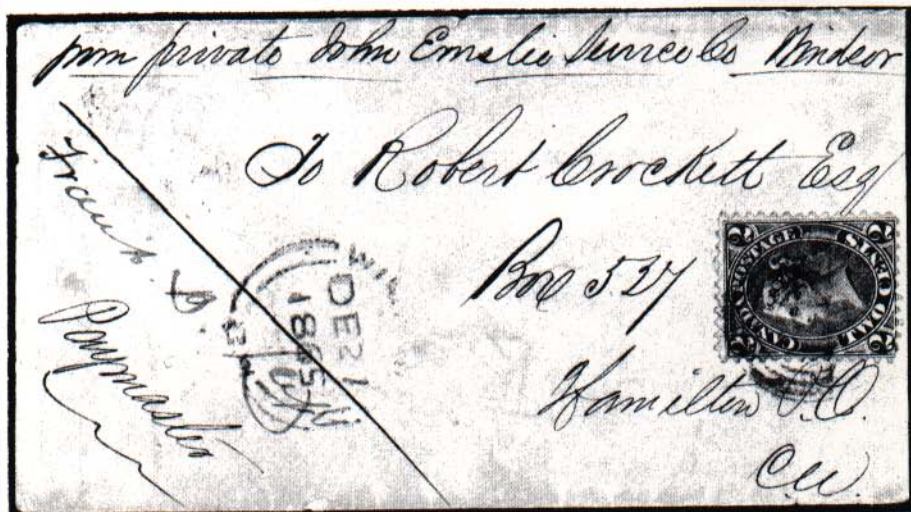 from private John Emslie Service Co Windsor
To Robert Crockett Esq
Box 527
Hamilton P.O.
C.W.
Paymaster
DE 21
1865
CANADA POSTAGE
TWO CENTS
2 2 2 2